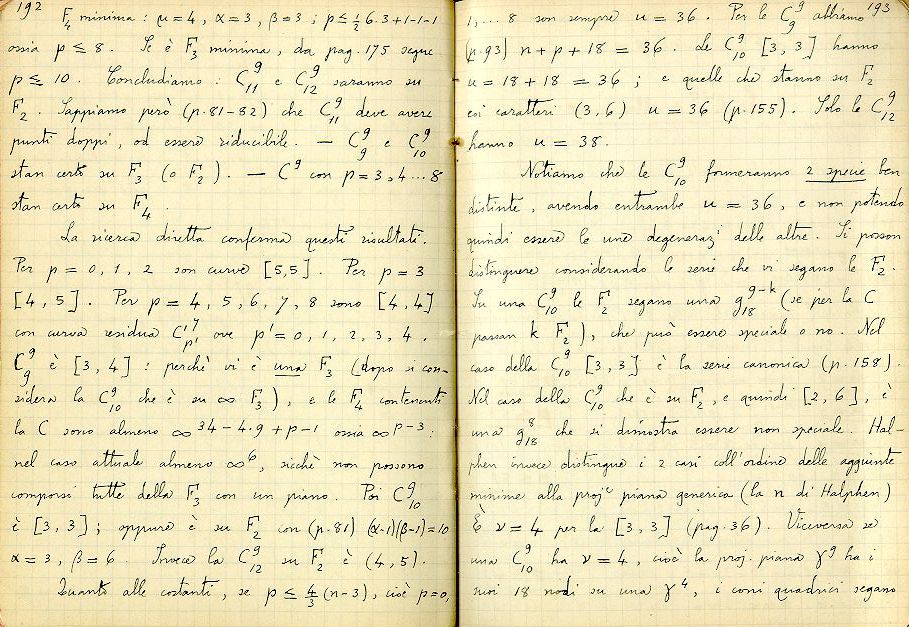 192
F₄ minima : μ = 4, α = 3, β = 3 ; p ≤ ½ 6·3 + 1 - 1 - 1
ossia p ≤ 8. Se è F₃ minima, da pag. 175 segue
p ≤ 10. Concludiamo : C⁹₁₁ e C⁹₁₂ saranno su
F₂. Sappiamo però (p. 81-82) che C⁹₁₁ deve avere
punti doppi, od essere riducibile. — C⁹₉ e C⁹₁₀
stan certo su F₃ (o F₂). — C⁹ con p = 3, 4 ... 8
stan certo su F₄.
La ricerca diretta conferma questi risultati.
Per p = 0, 1, 2 son curve [5,5]. Per p = 3
[4,5]. Per p = 4, 5, 6, 7, 8 sono [4,4]
con curva residua C'⁷p' ove p' = 0, 1, 2, 3, 4.
C⁹₉ è [3,4] : perchè vi è una F₃ (dopo si con-
sidera la C⁹₁₀ che è su ∞ F₃), e le F₄ contenenti
la C sono almeno ∞³⁴⁻⁴·⁹⁺ᵖ⁻¹ ossia ∞ᵖ⁻³ :
nel caso attuale almeno ∞⁶, sicchè non possono
comporsi tutte della F₃ con un piano. Poi C⁹₁₀
è [3,3] ; oppure è su F₂ con (p. 81) (α-1)(β-1) = 10
α = 3, β = 6. Invece la C⁹₁₂ su F₂ è (4,5).
Quanto alle costanti, se p ≤ 4/3 (n-3), cioè p = 0,
193
1, ... 8 son sempre u = 36. Per le C⁹₉ abbiamo
(p. 93) n + p + 18 = 36. Le C⁹₁₀ [3,3] hanno
u = 18 + 18 = 36 ; e quelle che stanno su F₂
coi caratteri (3,6) u = 36 (p. 155). Solo le C⁹₁₂
hanno u = 38.
Notiamo che le C⁹₁₀ formeranno 2 specie ben
distinte, avendo entrambe u = 36, e non potendo
quindi essere le une degenerazi delle altre. Si posson
distinguere considerando le serie che vi segano le F₂.
Su una C⁹₁₀ le F₂ segano una g⁹⁻ᵏ₁₈ (se per la C
passan k F₂), che può essere speciale o no. Nel
caso della C⁹₁₀ [3,3] è la serie canonica (p. 158).
Nel caso della C⁹₁₀ che è su F₂, e quindi [2,6], è
una g⁸₁₈ che si dimostra essere non speciale. Hal-
phen invece distingue i 2 casi coll'ordine delle aggiunte
minime alla projᵉ piana generica (la n di Halphen)
È ν = 4 per la [3,3] (pag. 36). Viceversa se
una C⁹₁₀ ha ν = 4, cioè la proj. piana γ⁹ ha i
suoi 18 nodi su una γ⁴, i coni quadrici segano